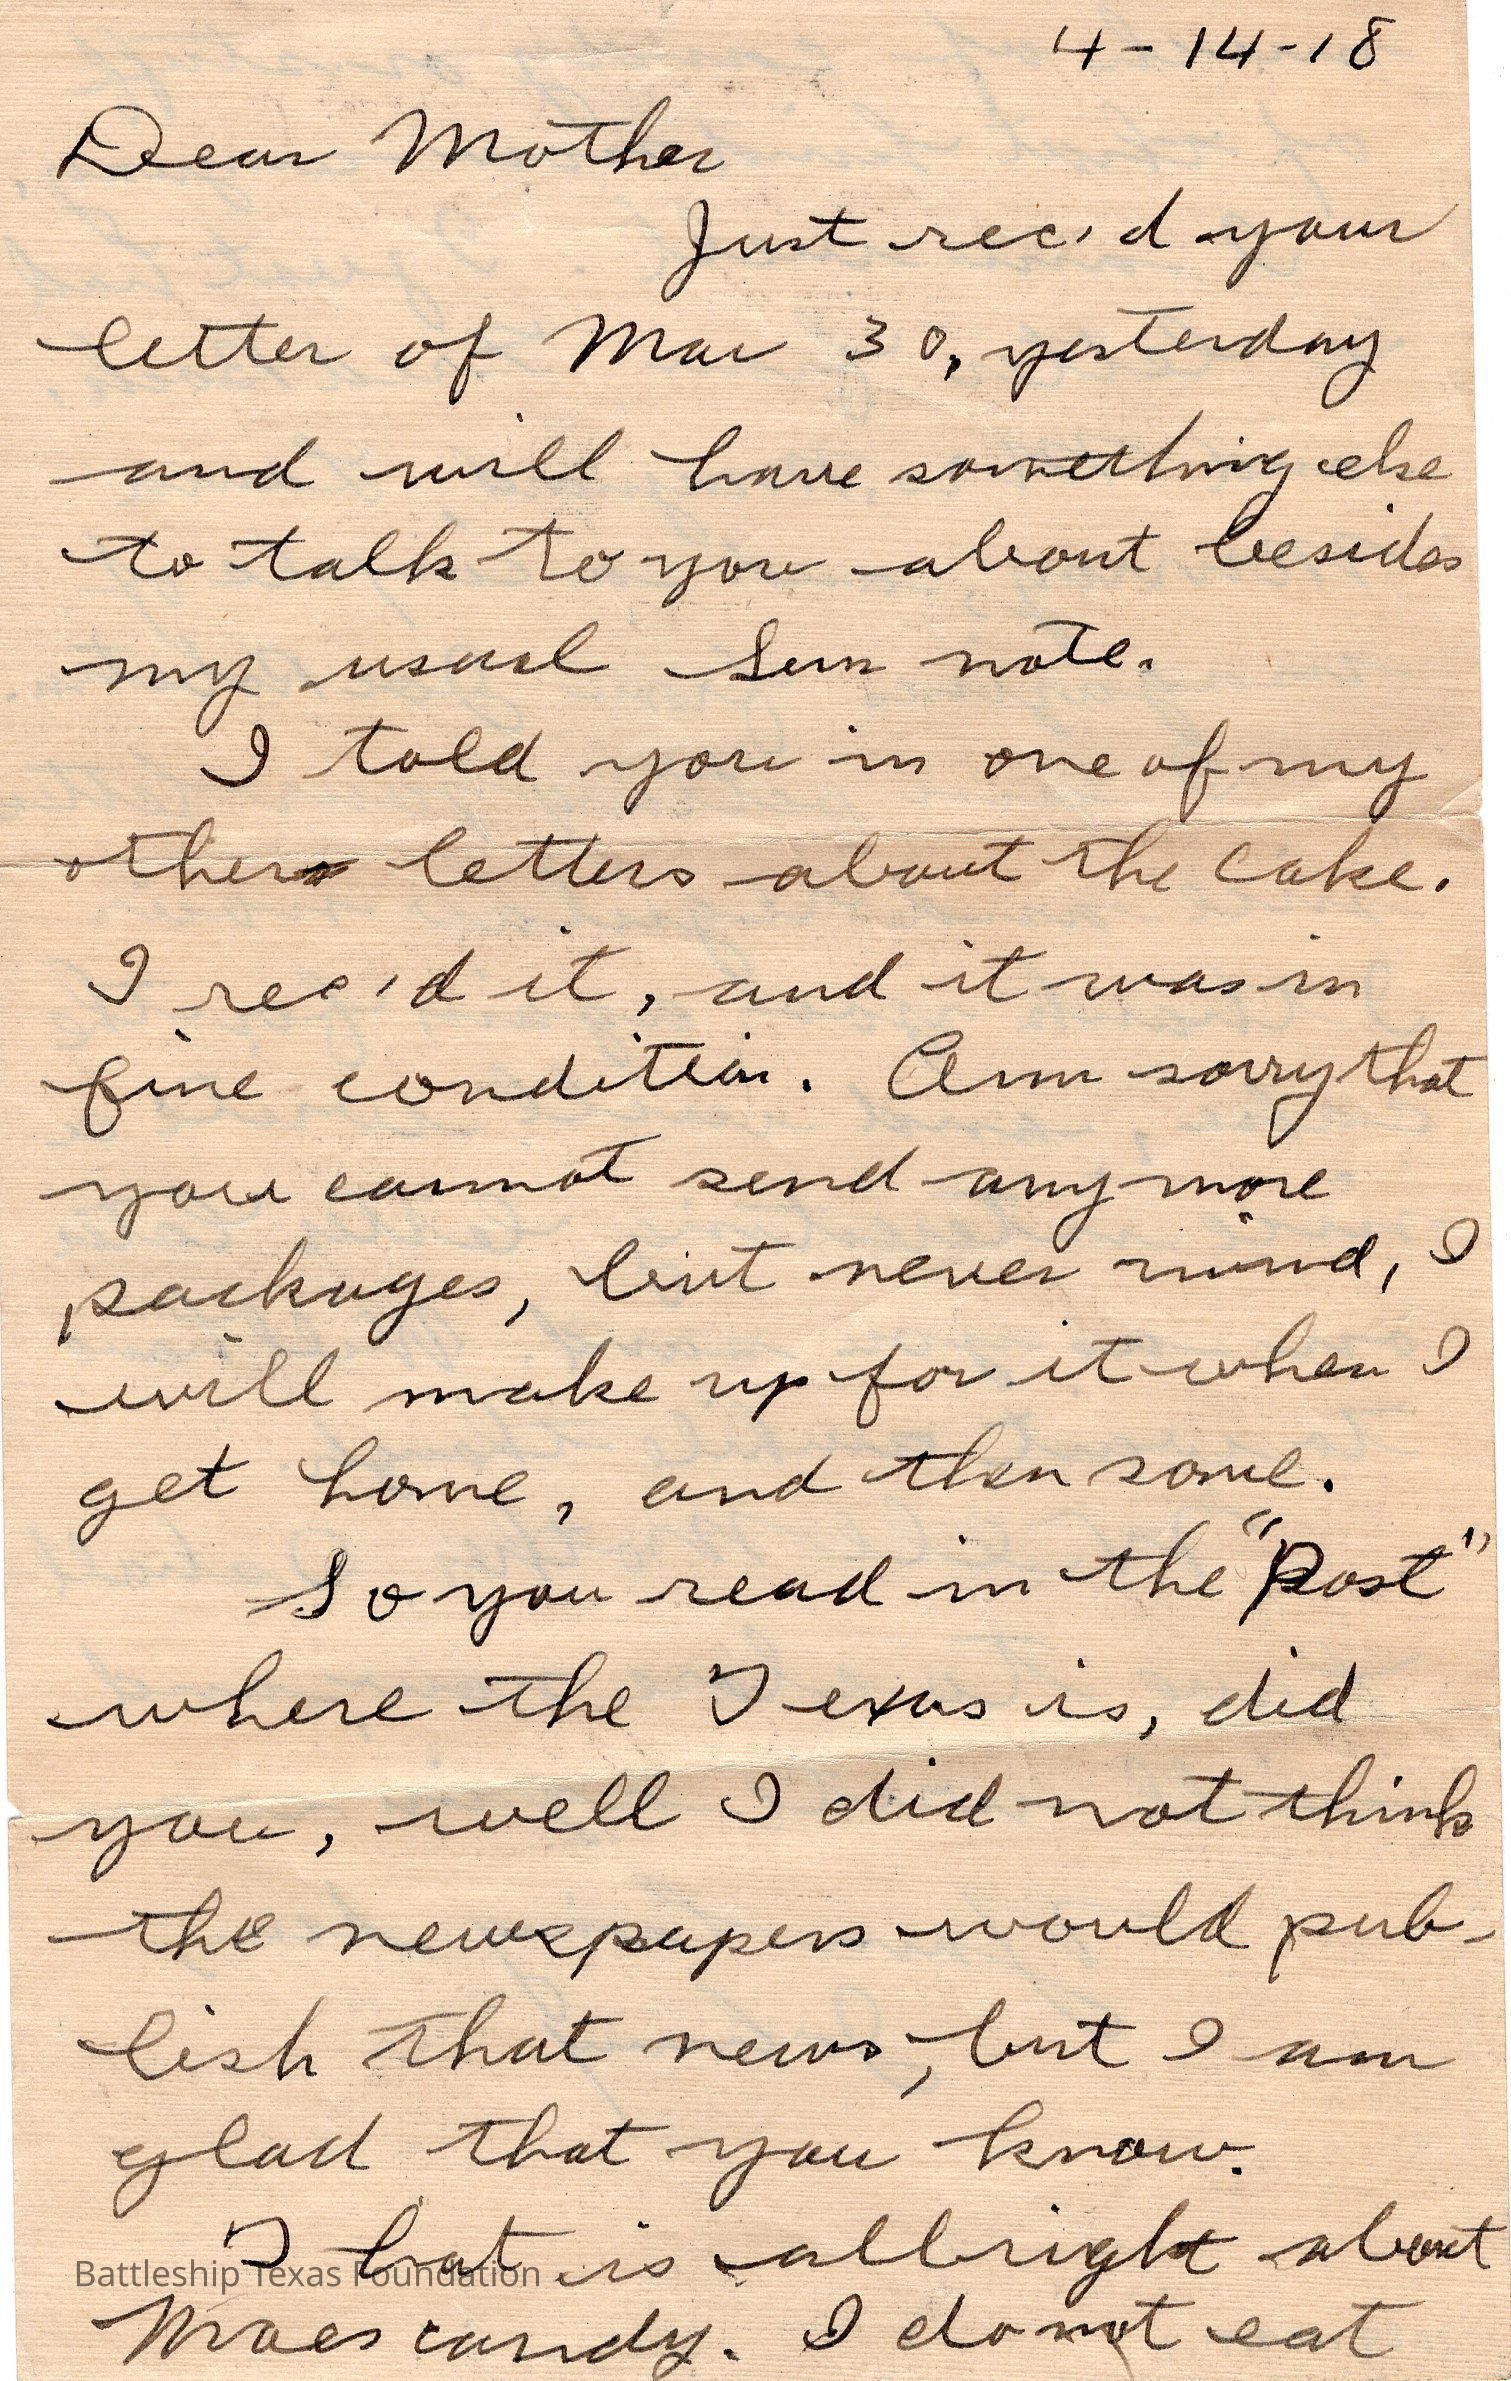 4-14-18
Dear Mother
Just rec'd your
letter of Mar 30, yesterday
and will have something else
to talk to you about besides
my usual Sun note.
I told you in one of my
other letters about the cake.
I rec'd it, and it was in
fine condition. Am sorry that
you cannot send any more
packages, but never mind, I
will make up for it when I
get home, and then some.
So you read in the "Post"
where the Texas is, did
you, well I did not think
the newspapers would pub-
lish that news, but I am
glad that you know.
That is allright about
Maes candy. I do not eat
Battleship Texas Foundation